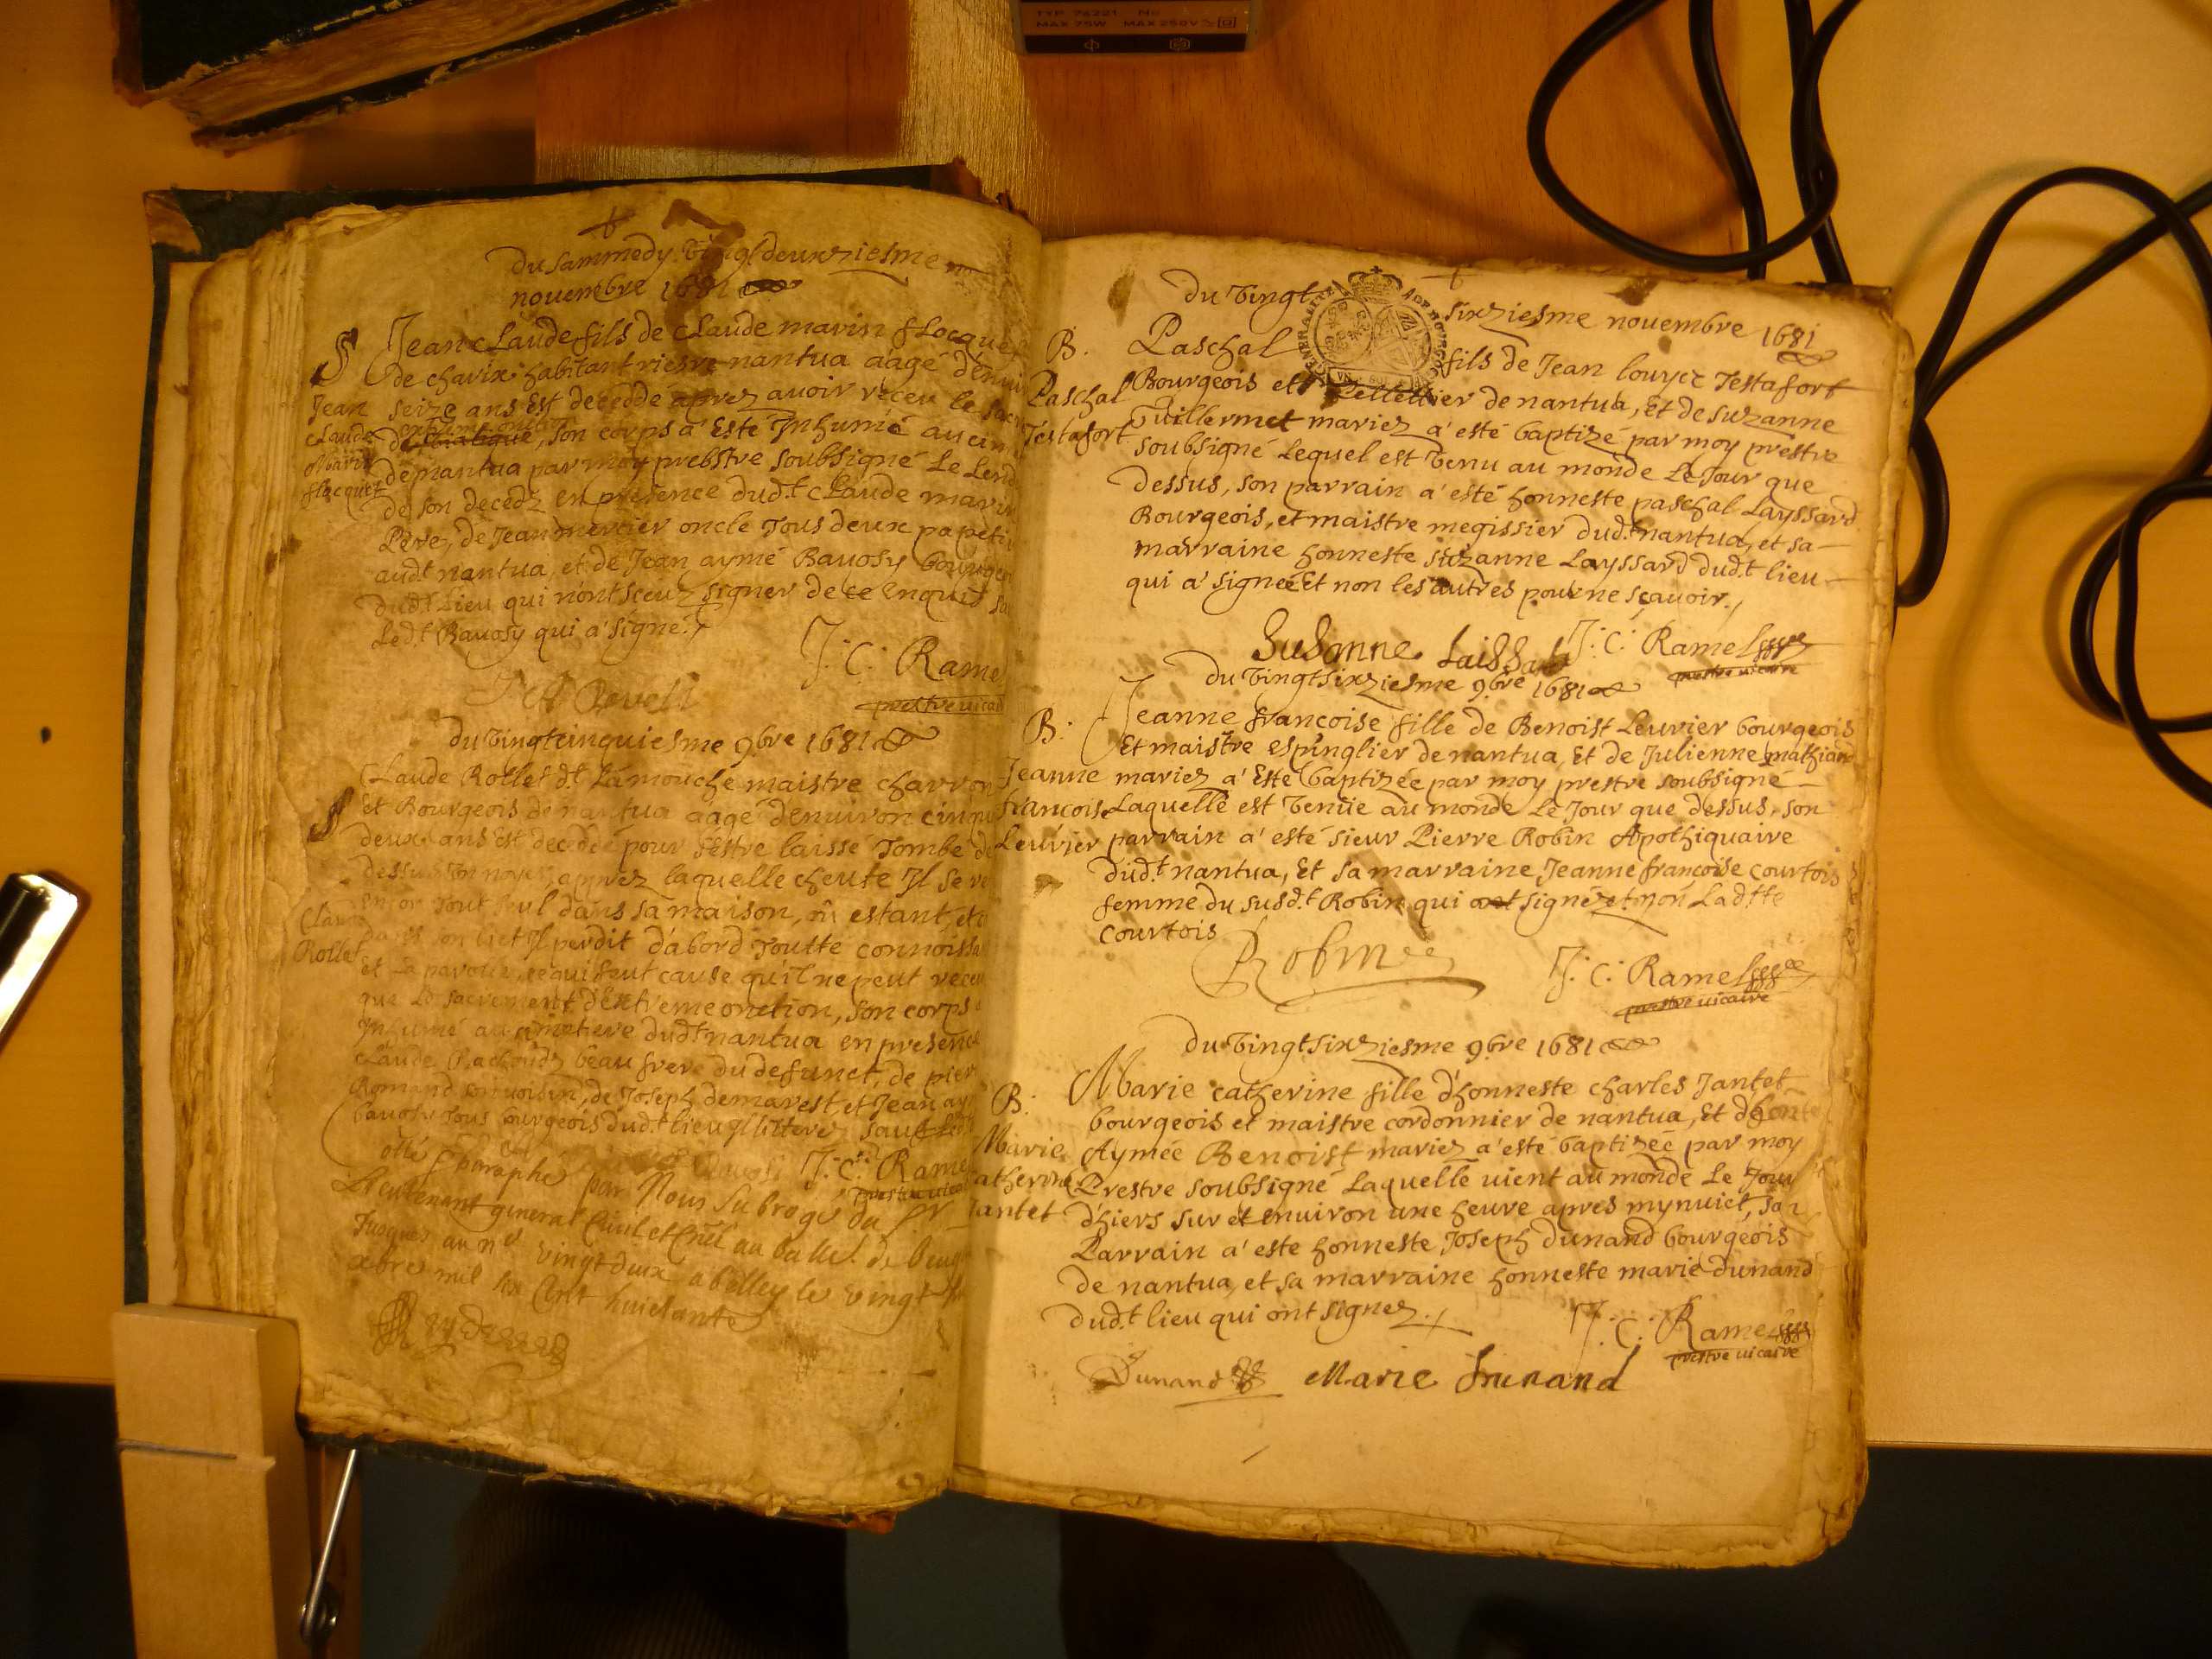 TYP 76221 No
MAX 75W MAX 250V
du sammedy vingt deuxziesme
novembre 1681
S Jean claude fils de claude marin flocquet
de charix habitant riesre nantua aagé d'enuir
Jean seize ans est decedé aprez auoir receu le sacr
claude extreme onction
de viatique, son corps a' esté Inhumé au cim
Marin de nantua par moy prebstre soubsigné le lend
flacquet de son decedz en presence dud.t claude marin
Pere, de Jean mercier oncle tous deux papeti
aud.t nantua, et de Jean aymé Bauosy bourgeo
dud.t lieu qui n'ont sceuz signer de ce enquis sa
led.t Bauosy qui a' signé.
J: C: Rame
prestre uicai
du vingtcinquiesme 9bre 1681
Claude Rollet d.t Lamouche maistre charron
S et Bourgeois de nantua aagé d'enuiron cinqu
deux ans est decedé pour s'estre laissé tombe de
dessus un noyer, aprez laquelle cheute Il se re
tout seul dans sa maison, où estant, et
Claude
lict Il perdit d'abord toutte connoissa
Rollet
et la parolle, ce qui feut cause qu'il ne peut receu
que le sacrement d'extreme onction, son corps a
Inhumé au cimetiere dud.t nantua en presence
claude beau frere du defunct, de pier
Romand son voisin, de Joseph demarest, et Jean ay
bauosy tous bourgeois dud.t lieu illiterez sauf led.t
J: C: Rame
prestre uica
cotté et paraphé par Nous subrogé du sr
Lieutenant general Ciuil et Cril au balle. de beug
Jusques au n.e vingt deux a belley le vingt
xbre mil six Cent huictante
du vingt sixziesme novembre 1681
GENERALITE DE BOURGOGNE
B. Paschal fils de Jean louyct Testafort
Paschal Bourgeois et Pellettier de nantua, et de suzanne
Testafort Guillermet mariez a' esté baptizé par moy prestre
soubsigné lequel est venu au monde le Jour que
dessus, son parrain a' esté honneste paschal Layssard
Bourgeois, et maistre megissier dud.t nantua, et sa
marraine honneste suzanne Layssard dud.t lieu
qui a' signéé Et non les autres pour ne sçavoir.
Susanne Laissard J: C: Ramel
prestre uicaire
du vingtsixziesme 9bre 1681
B: Jeanne francoise fille de Benoist Leuvier bourgeois
Et maistre espinglier de nantua, Et de Julienne mathiand
Jeanne mariez a' Esté baptizée par moy prestre soubsigné
francoise Laquelle est venüe au monde le Jour que dessus, son
Leuvier parrain a' esté sieur Pierre Robin Apothiquaire
dud.t nantua, Et sa marraine Jeanne francoise courtois
femme du susd.t Robin qui ont signéz et non Ladtte
courtois
Robin
J: C: Ramel
prestre uicaire
du vingtsixziesme 9bre 1681
B: Marie catherine fille d'honneste charles Jantet
bourgeois et maistre cordonnier de nantua, Et d'honte
Marie Aymée Benoist mariez a' esté baptizéé par moy
Catherine Prestre soubsigné Laquelle vient au monde Le Jour
Jantet d'hiers sur et enuiron une heure apres mynuict, son
Parrain a' esté honneste Joseph dunand bourgeois
de nantua, et sa marraine honneste marie dunand
dud.t lieu qui ont signez.
J: C: Ramel
prestre uicaire
Dunand Marie Dunand